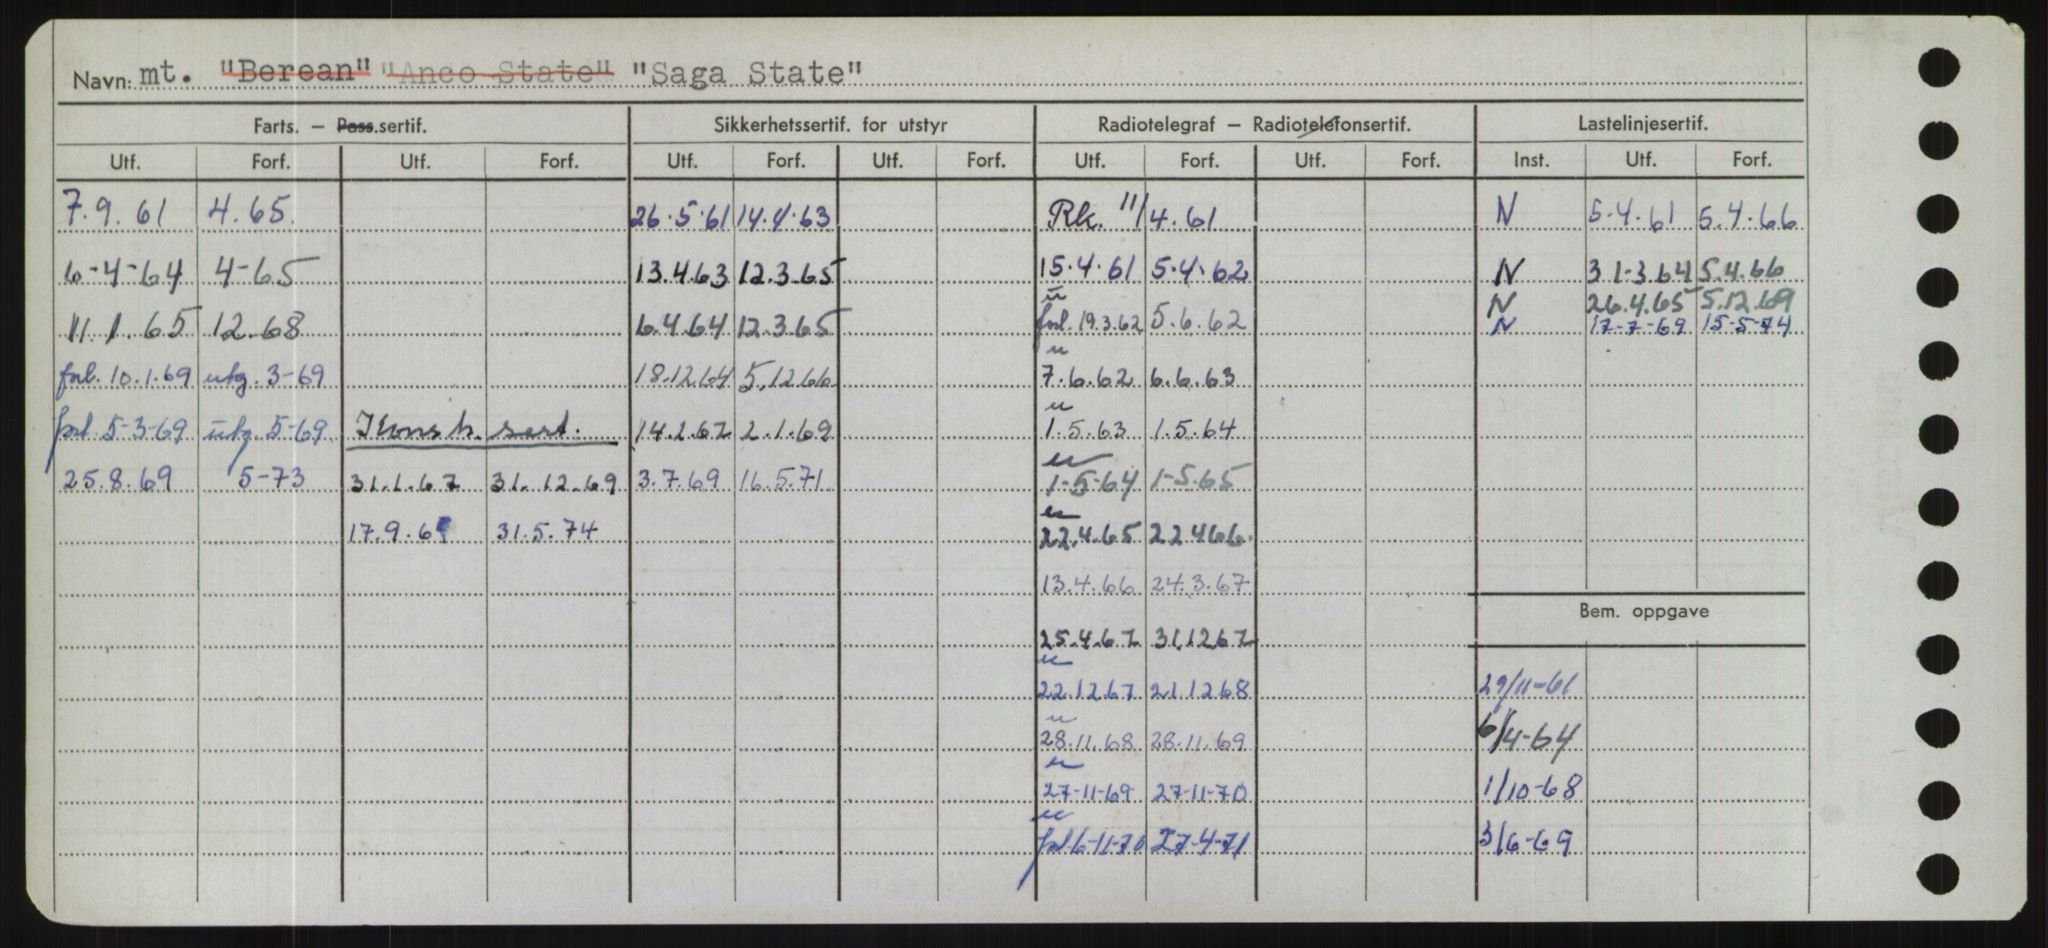 Navn: mt. "Berean" "Anco State" "Saga State"
Farts. – Pass.sertif. Sikkerhetssertif. for utstyr Radiotelegraf – Radiotelefonsertif. Lastelinjesertif.
Utf. Forf. Utf. Forf. Utf. Forf. Utf. Forf. Utf. Forf. Utf. Forf. Inst. Utf. Forf.
7.9.61 4.65. 26.5.61 14.4.63 Rk. 11/4.61 N 5.4.61 5.4.66
6-4-64 4-65 13.4.63 12.3.65 15.4.61 5.4.62 N 31-3.64 5.4.66
u N 26.4.65 5.12.69
11.1.65 12.68 6.4.64 12.3.65 forl. 19.3.62 5.6.62 N 17-7-69 15-5-74
u
forl. 10.1.69 utg. 3-69 18.12.64 5.12.66 7.6.62 6.6.63
u
forl. 5-3-69 utg. 5-69 Konstr. sert. 14.2.67 2.1.69 1.5.63 1.5.64
u
25.8.69 5-73 31.1.67 31.12.69 3.7.69 16.5.71 1-5-64 1-5.65
u
17.9.69 31.5.74 22.4.65 22.4.66.
13.4.66 24.3.67
Bem. oppgave
25.4.67 31.12.67
u
22.12.67 21.12.68 29/11-61
u
28.11.68 28.11.69 6/4-64
u
27-11-69 27-11-70 1/10-68
u
forl. 6-11-70 27-4-71 3/6-69